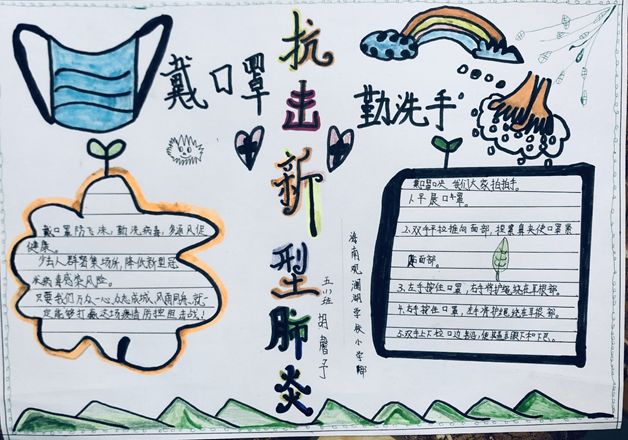 戴口罩
抗击新型肺炎
勤洗手
戴口罩防飞沫，勤洗病毒，多通风促
健康。
少去人群聚集场所，降低新型冠
状病毒感染风险。
只要我们万众一心，众志成城，风雨同舟，就一
定能够打赢这场疫情防控阻击战！
戴口罩口诀 我们大家拍拍手。
1.平展口罩。
2.双手平拉推向面部，捏紧鼻夹使口罩紧
面部。
3.左手按住口罩，右手将护绳绕在耳根部。
4.右手按住口罩，左手将护绳绕在耳根部。
5.双手上下拉口边
海南观澜湖学校小学部